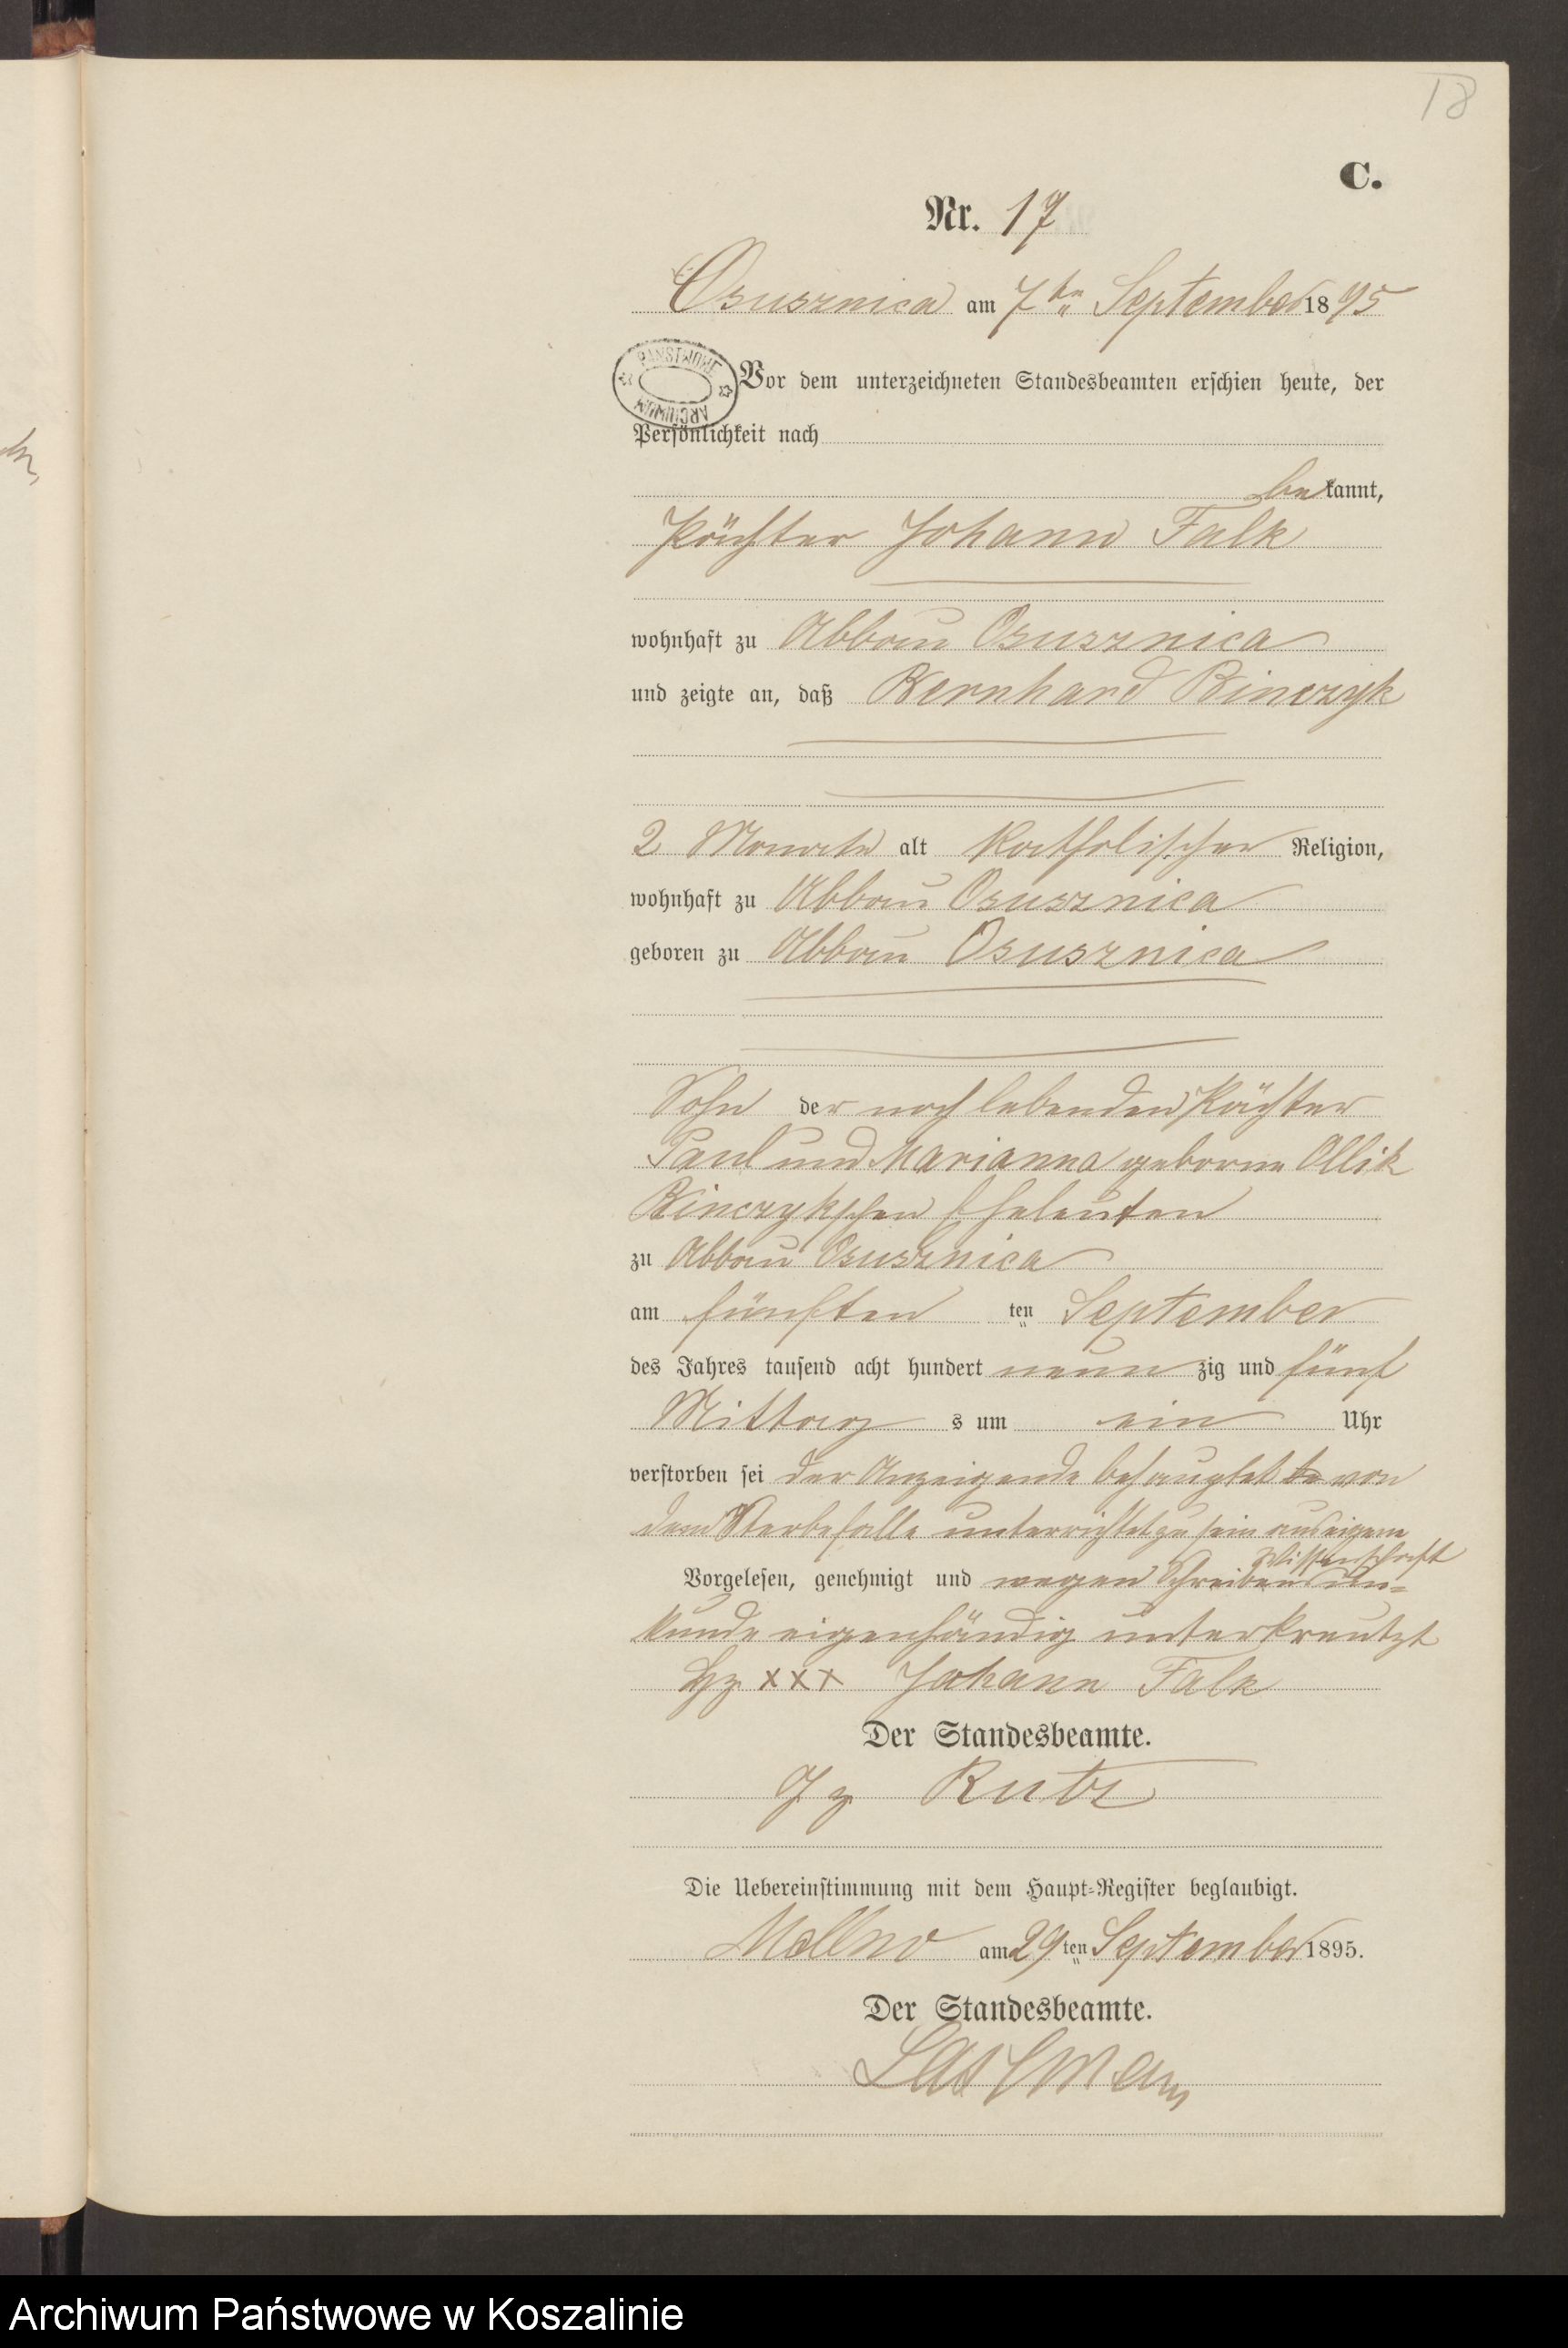 18
C.
Nr. 17
Osusznica am 7ten September 1895
PAŃSTWOWE ARCHIWUM
Vor dem unterzeichneten Standesbeamten erschien heute, der
Persönlichkeit nach
bekannt,
Pächter Johann Falk
wohnhaft zu Abbau Osusznica
und zeigte an, daß Bernhard Binczyk
2 Monate alt katholischer Religion,
wohnhaft zu Abbau Osusznica
geboren zu Abbau Osusznica
Sohn der noch lebenden Pächter
Paul und Marianna geborne Ollik
Binczykschen Eheleuten
zu Abbau Osusznica
am fünften ten September
des Jahres tausend acht hundert neunzig und fünf
Mittags um ein Uhr
verstorben sei der Anzeigende behauptet von
dem Sterbefalle unterrichtet zu sein aus eigene
Wissenschaft
Vorgelesen, genehmigt und wegen Schreibensun-
kunde eigenhändig unterkreutzt
Hz xxx Johann Falk
Der Standesbeamte.
Gz Rutz
Die Uebereinstimmung mit dem Haupt-Register beglaubigt.
am 29ten September 1895.
Der Standesbeamte.
Archiwum Państwowe w Koszalinie